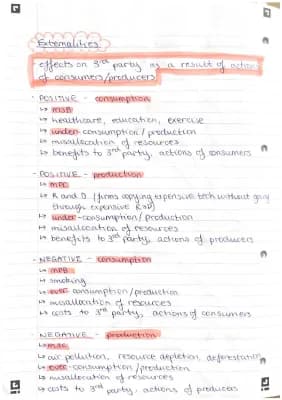 Externalities
effects on 3rd party as a result of actions
of consumers/producers
- POSITIVE - consumption
↳ MSB
↳ healthcare, education, exercise
↳ under-consumption/production
↳ misallocation of resources
↳ benefits to 3rd party, actions of consumers
- POSITIVE - production
↳ MPC
↳ R and D (firms copying expensive tech without going
through expensive R&D)
↳ under-consumption/production
↳ misallocation of resources
↳ benefits to 3rd party, actions of producers
- NEGATIVE - consumption
↳ MPB
↳ smoking
↳ over consumption/production
↳ misallocation of resources
↳ costs to 3rd party, actions of consumers
NEGATIVE - production
↳ MSC
↳ air pollution, resource depletion, deforestation
↳ over-consumption/production
↳ misallocation of resources
↳ costs to 3rd party, actions of producers